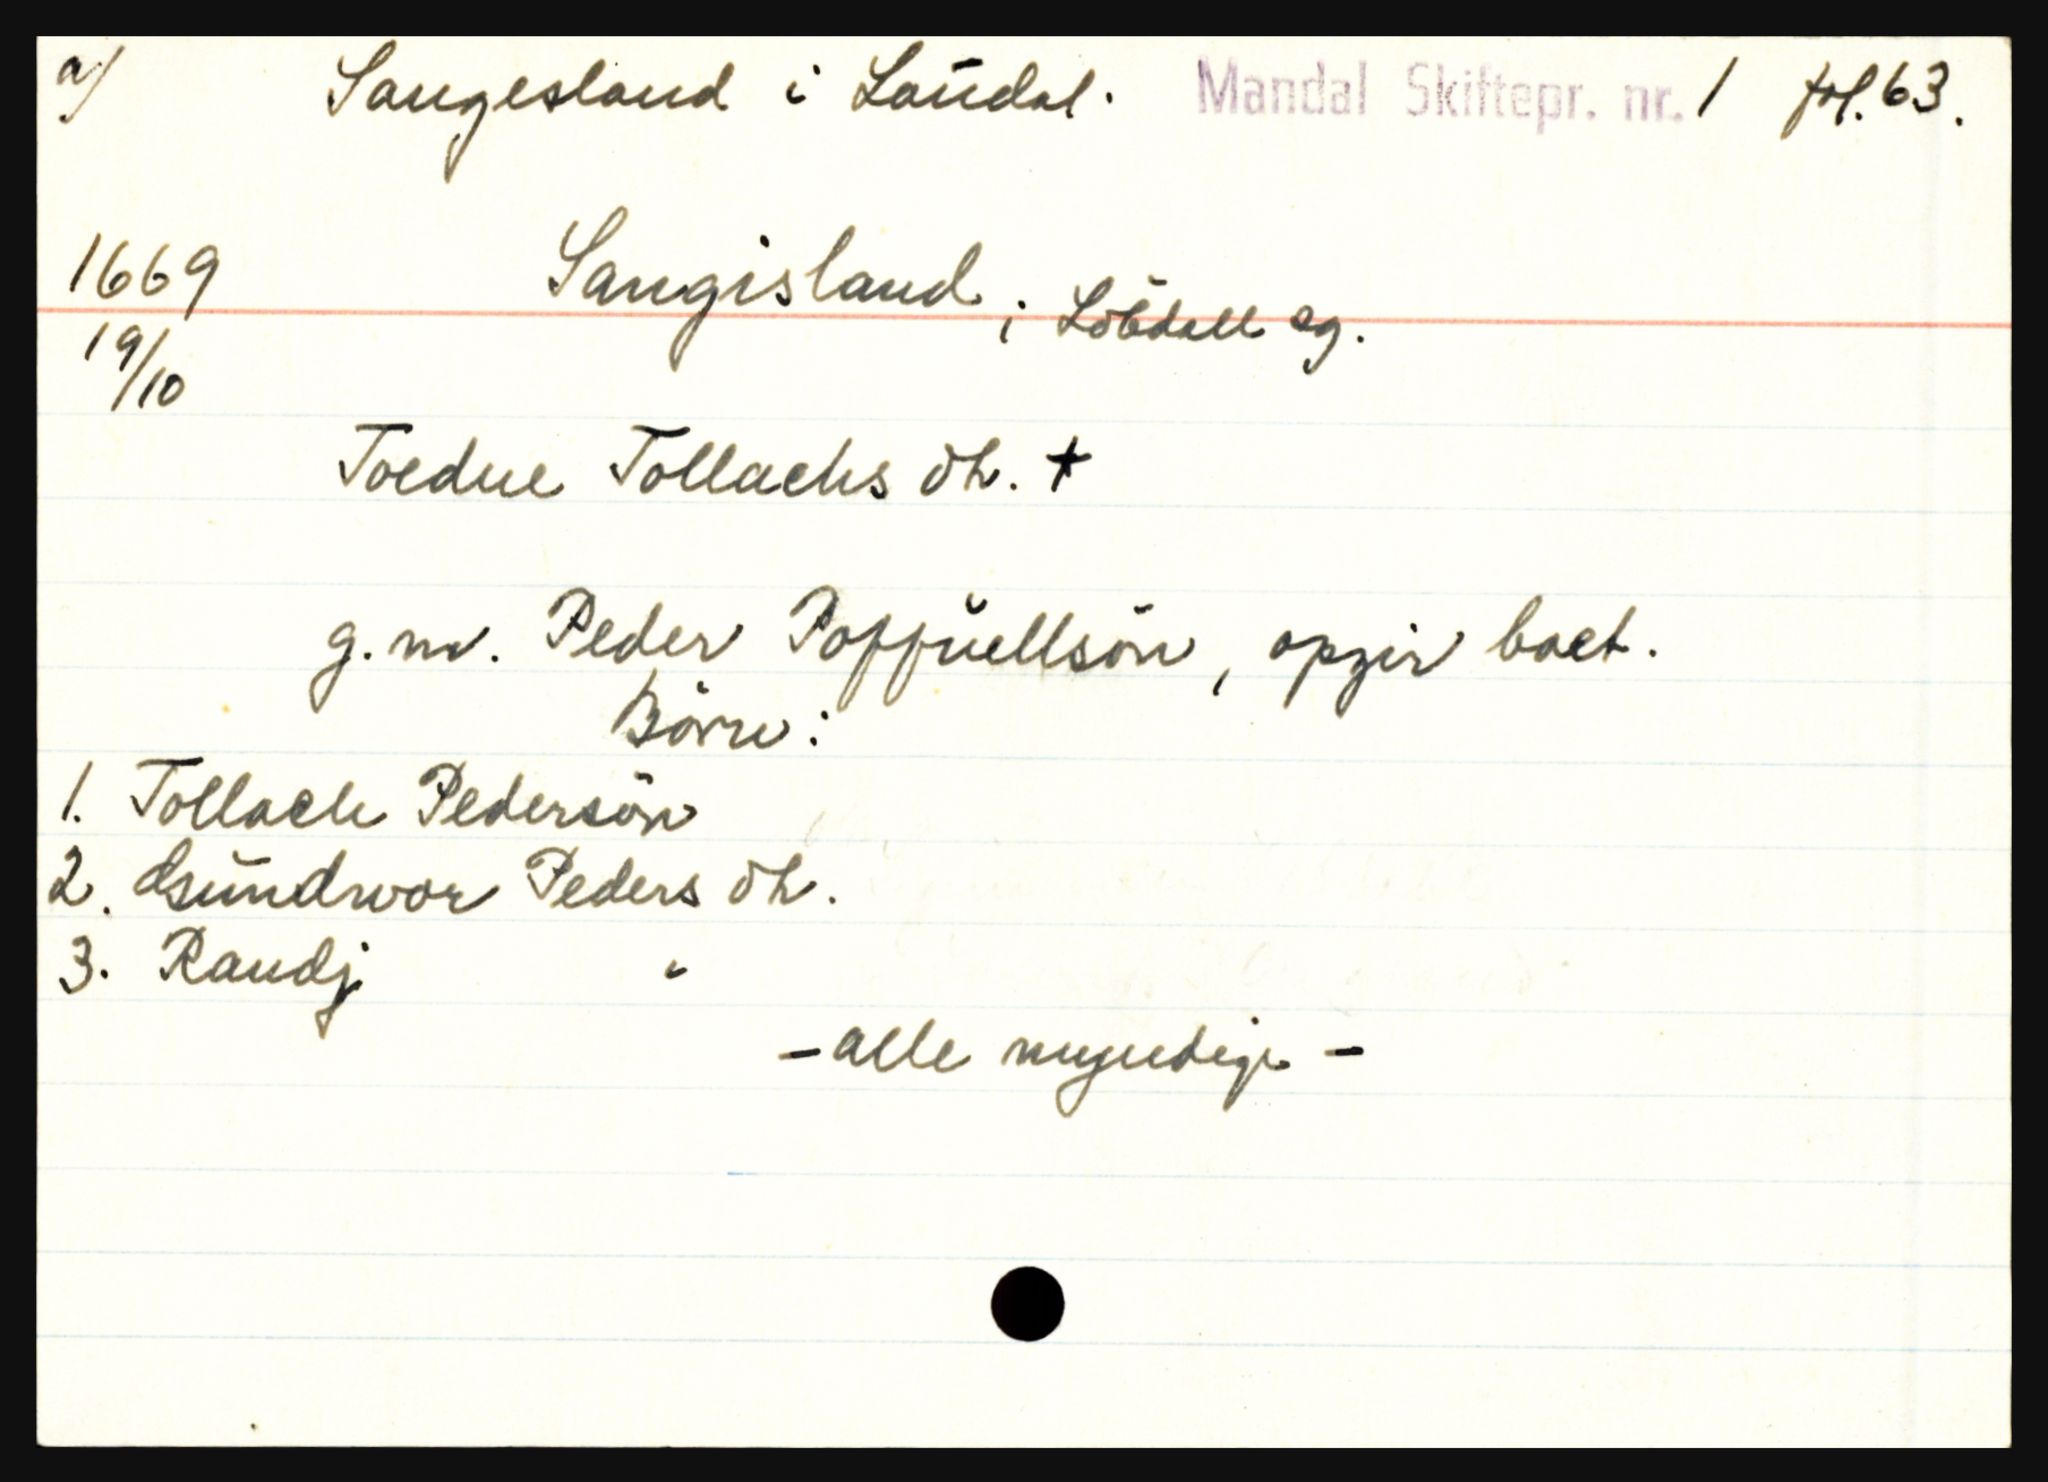 a/ Saugesland i Laudal. Mandal Skiftepr. nr. 1 fol. 63.
1669 Saugisland i Löbdall sg.
19/10
Toedne Tollachs dh. +
g. m. Peder Poffuellsön, opgir boet.
Börn:
1. Tollach Pedersön
2. Gundwor Peders dh.
3. Randj "
- alle myndige -